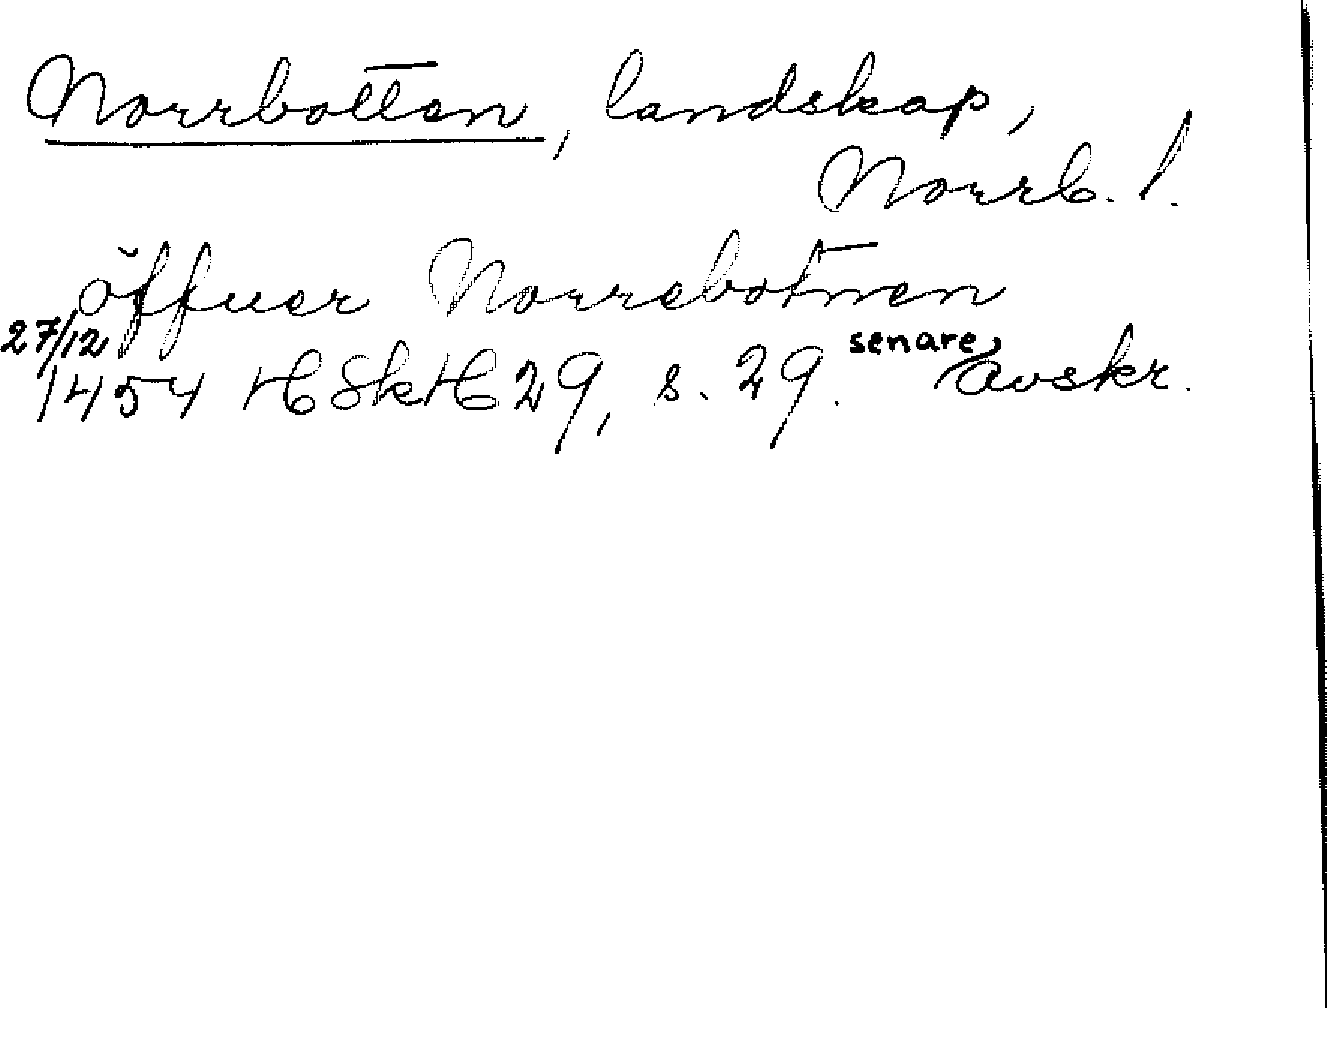 Norrbotten, landskap,
Norrb. l.
öffuer Norrebotnen
27/12 1454 HSkH 29, s. 29. senare avskr.